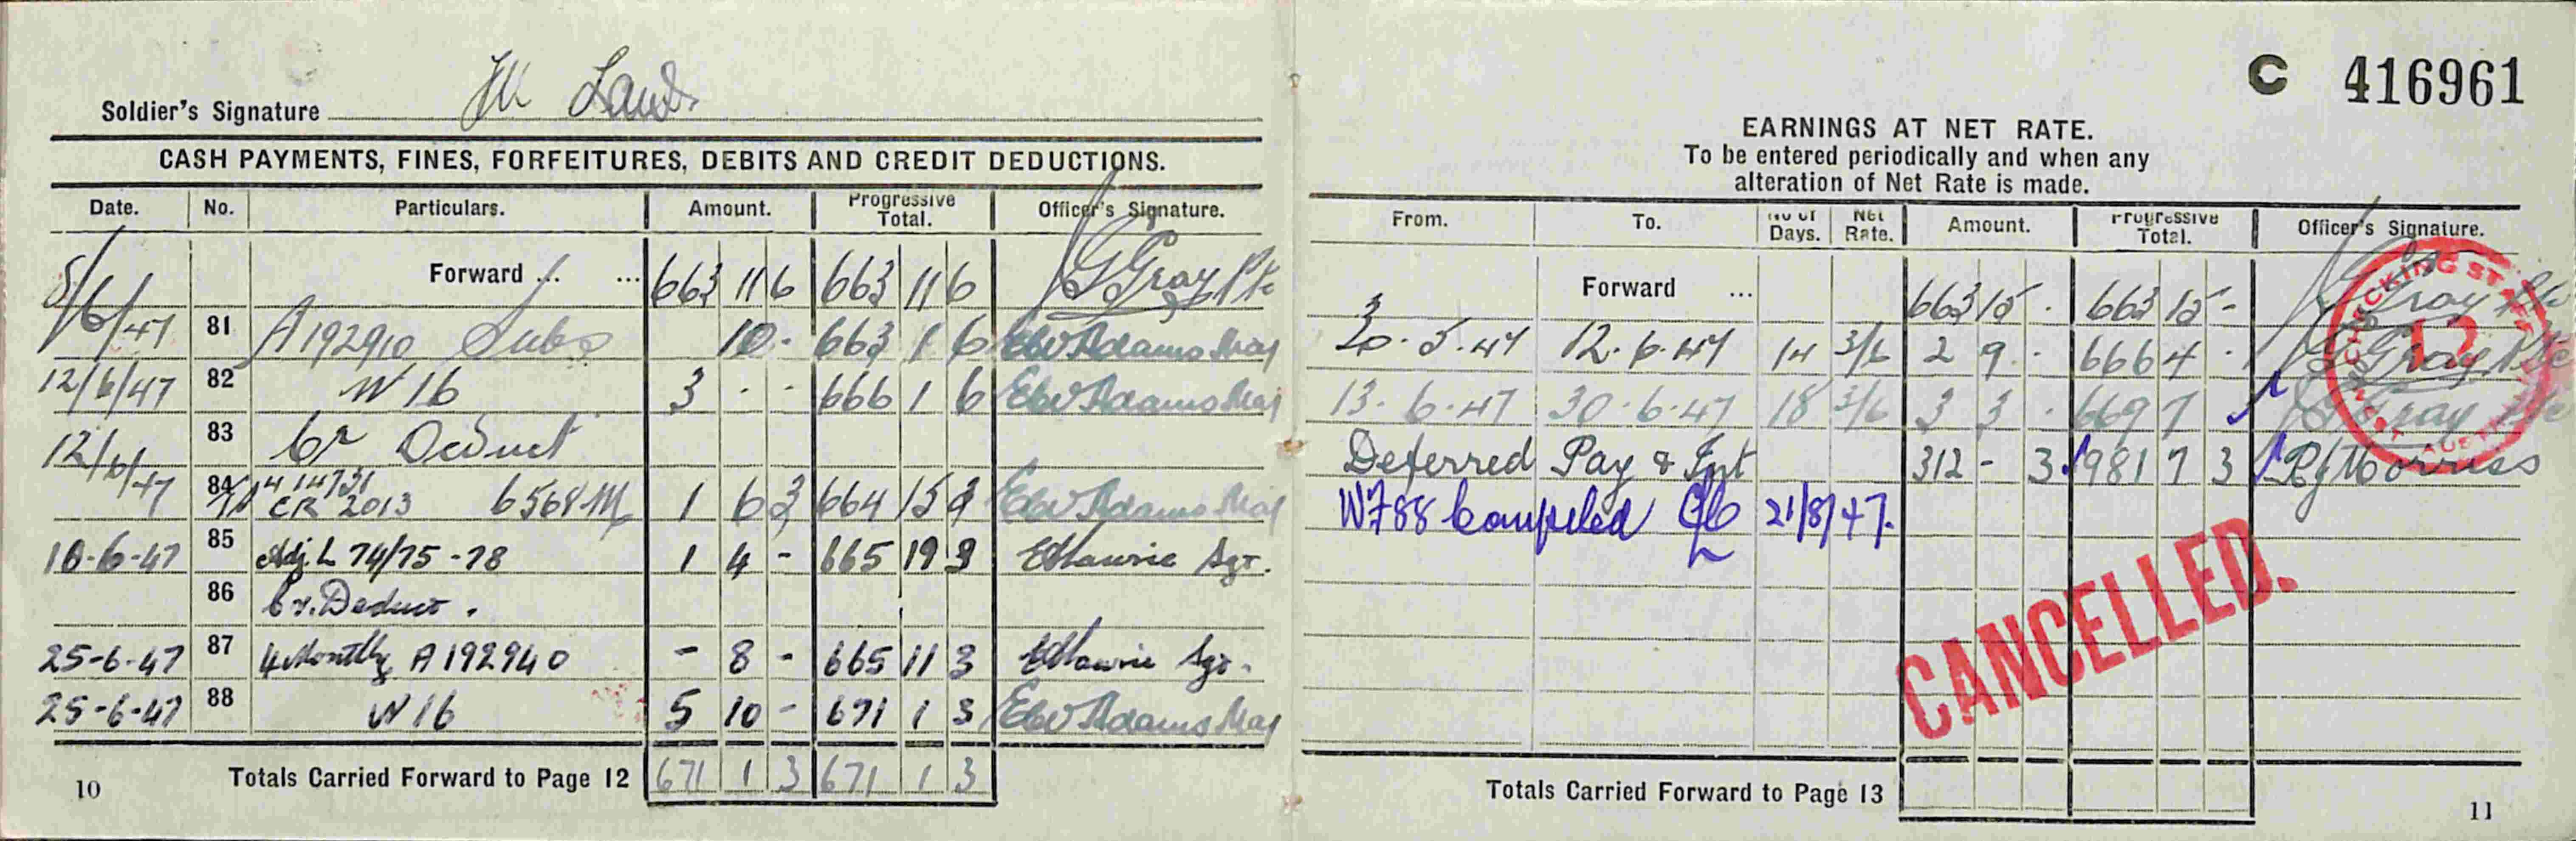 Soldier's Signature
CASH PAYMENTS, FINES, FORFEITURES, DEBITS AND CREDIT DEDUCTIONS.
Date. No. Particulars. Amount. Progressive Total. Officer's Signature.
Forward ... ... 663 11 6 663 11 6 Gray Pte
5/6/47 81 A192910 Subs 10 - 663 1 6 Adams Maj
12/6/47 82 W 16 3 - - 666 1 6 Adams Maj
83 Cr Deduct
12/6/47 84 CR 2013 1 6 3 664 15 3 Adams Maj
10-6-47 85 Adj. L 74/75-78 1 4 - 665 19 3 Sgt.
86 Cr. Deduct.
25-6-47 87 4 Monthly A192940 - 8 - 665 11 3 Sgt.
25-6-47 88 W 16 5 10 - 671 1 3 Adams Maj
Totals Carried Forward to Page 12 671 1 3 671 1 3
10
C 416961
EARNINGS AT NET RATE.
To be entered periodically and when any
alteration of Net Rate is made.
From. To. No of Days. Net Rate. Amount. Progressive Total. Officer's Signature.
Forward ... 663 15 - 663 15 - Gray Pte
5.47 12.6.47 14 3/6 2 9 - 666 4 - Gray Pte
13.6.47 30.6.47 18 3/6 3 3 - 669 7 Gray Pte
Deferred Pay & Int 312 - 3 981 7 3
W788 Compiled 21/8/47.
12
CANCELLED.
Totals Carried Forward to Page 13
11